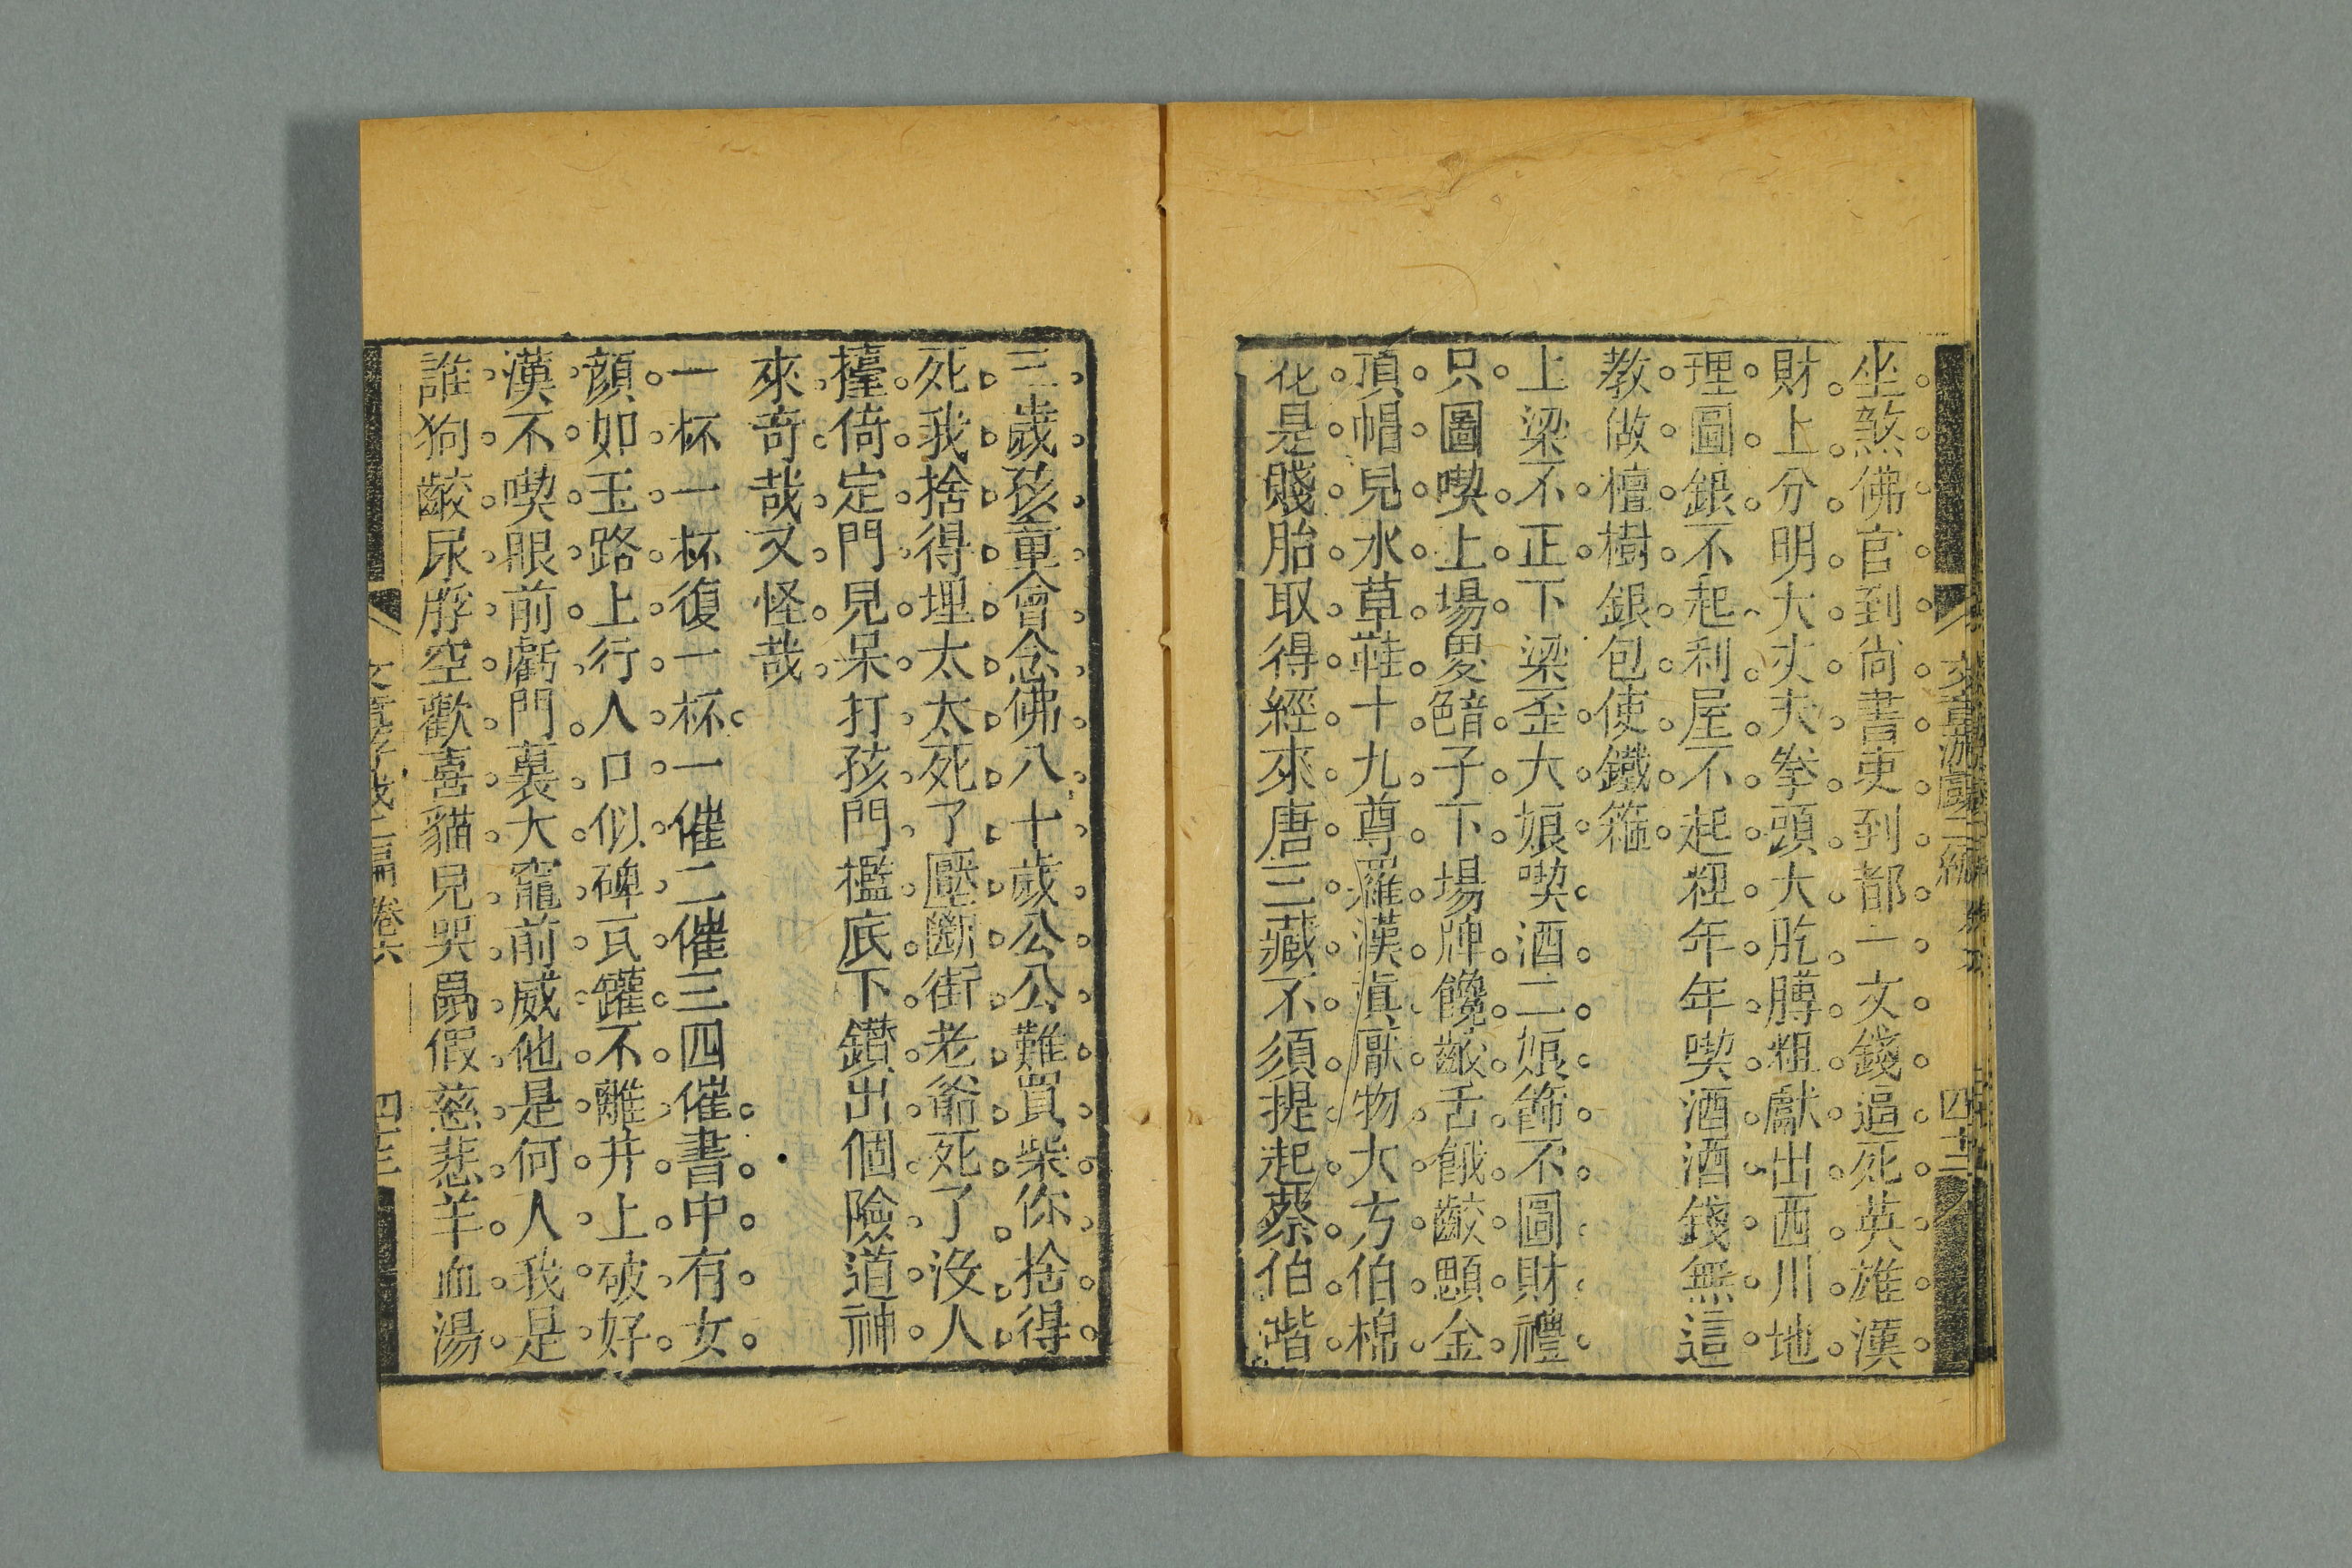 坐煞佛官到尙書吏到都一文錢逼死英雄漢
財上分明大丈夫拳頭大肐膊粗獻出西川地
理圖銀不起利屋不起租年年喫酒酒錢無這
教做檀樹銀包使鐵箍
上梁不正下梁歪大娘喫酒二娘篩不圖財禮
只圖喫上場子下場牌饞齩舌餓齩顋金
頂帽兒水草鞋十九尊羅漢眞厭物大方伯棉
花是賤胎取得經來唐三藏不須提起蔡伯喈
文章游戲二編
四十三
三歲孩童會念佛八十歲公公難買柴你捨得
死我捨得埋太太死了壓斷街老爺死了沒人
擡倚定門兒呆打孩門檻底下鑽出個險道神
來奇哉又怪哉
一杯一杯復一杯一催二催三四催書中有女
顔如玉路上行人口似碑瓦罐不離井上破好
漢不喫眼前虧門裏大竈前威他是何人我是
誰狗齩尿脬空歡喜貓兒哭鼠假慈悲羊血湯
卷六